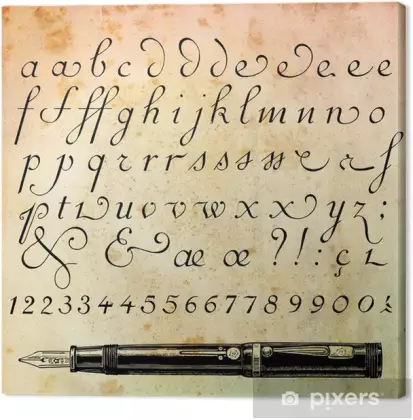 a a b c d d d e e e e e
f f ff g h i j k l m n n o
p p q r r r s s s ss e a s
p t u u v v w x x y z ;
& & æ œ ? ! : ç
1 2 2 3 3 4 4 5 5 6 6 7 7 8 9 9 0 0
pixers